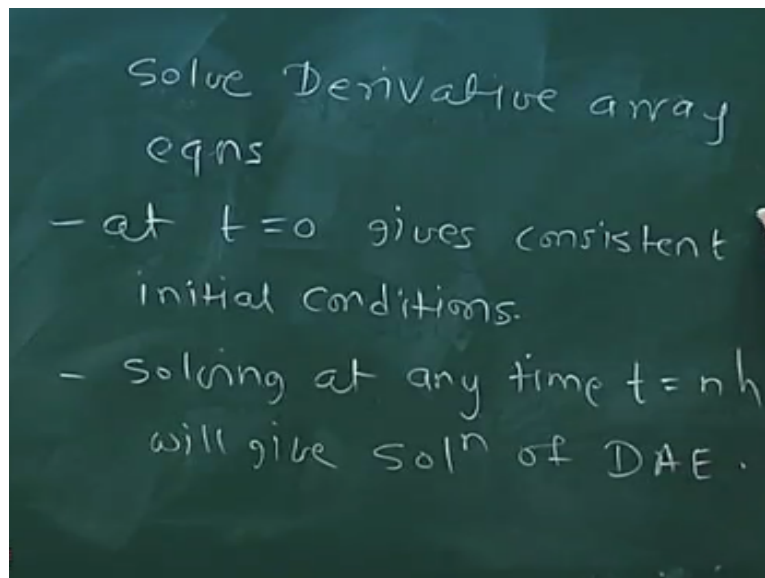 Solve Derivative array
eqns
- at t=0 gives consistent
initial conditions.
- Solving at any time t = nh
will give solⁿ of DAE.